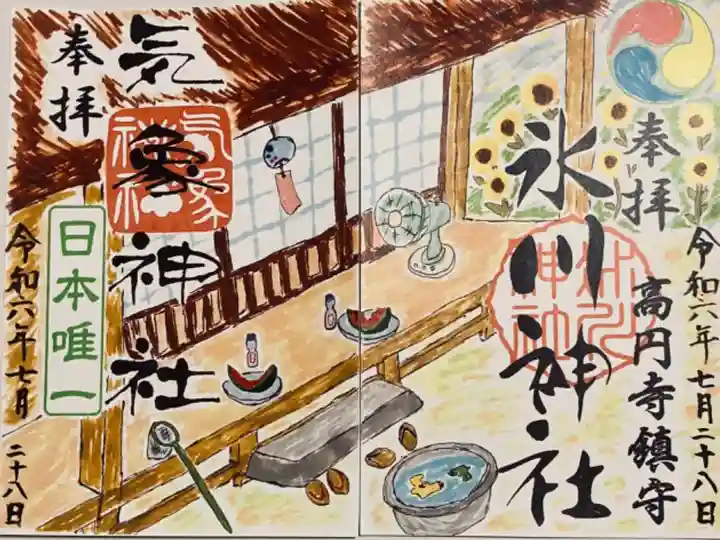 奉拝
高円寺鎮守
氷川神社
氷川神社
令和六年七月二十八日
奉拝
気象神社
気象神社
日本唯一
令和六年七月
二十八日